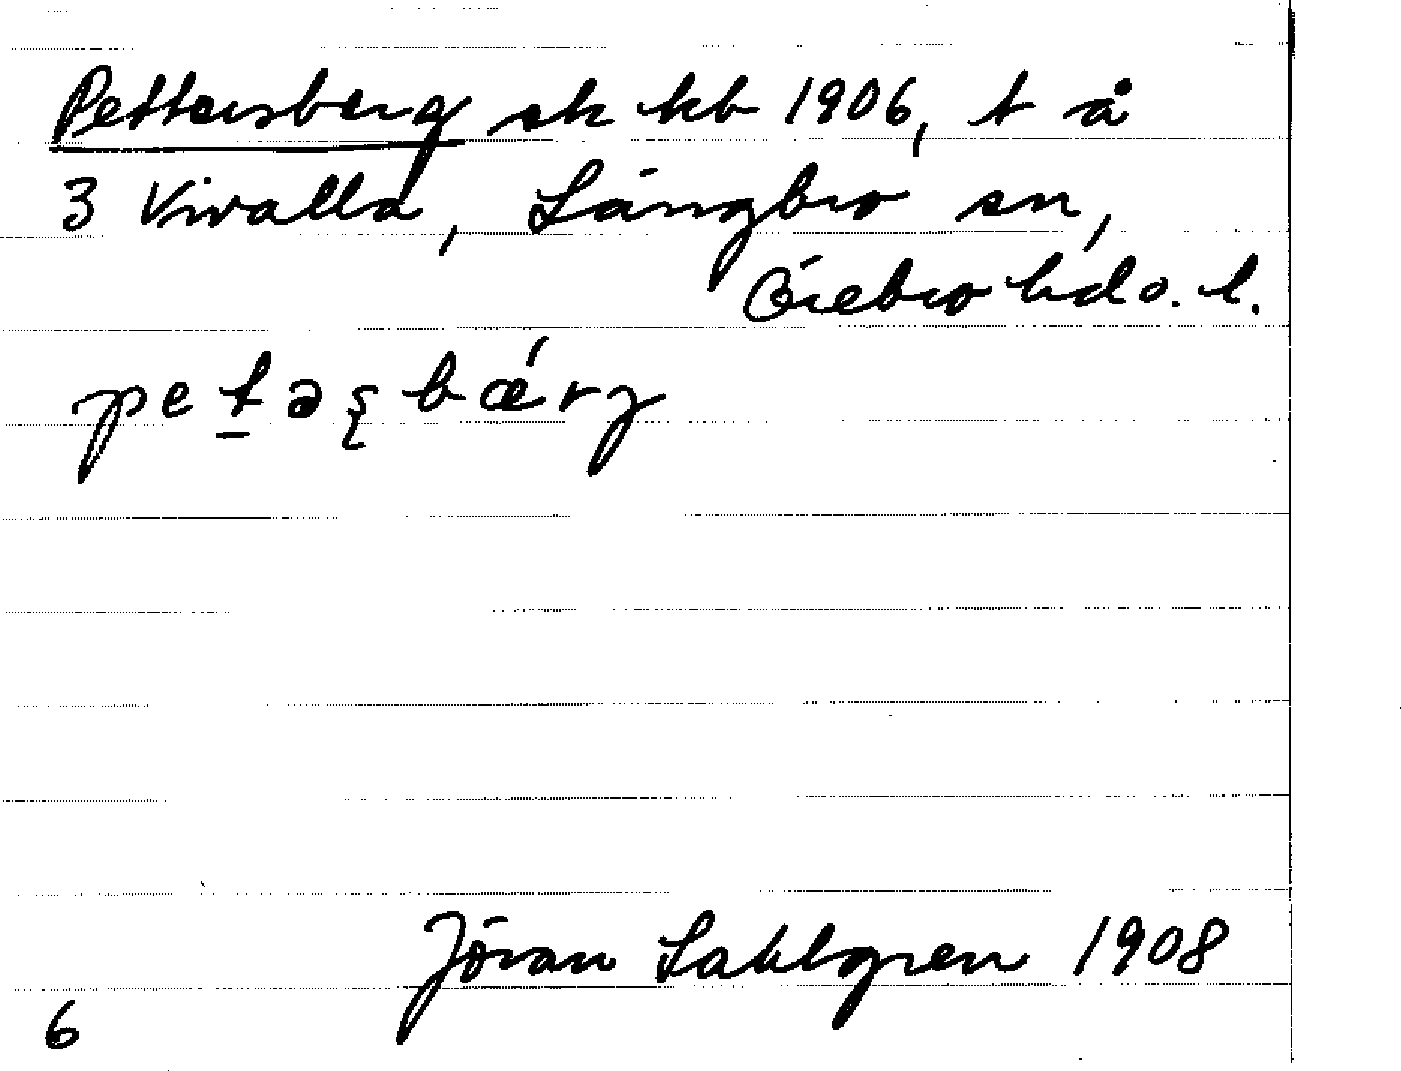 Pettersberg sk kb 1906, t å
3 Vivalla, Längbro sn,
Örebro hd o. l.
pet̲əʂbǽrg
Jöran Sahlgren 1908
6